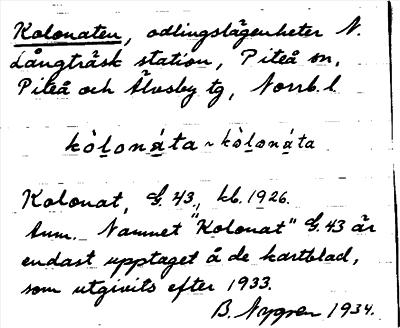 Kolonaten, odlingslägenheter N.
Långträsk station, Piteå sn,
Piteå och Älvsby tg, Norrb. l.
kòl̲oná̲ta ~ kòl̲oná̲ta
Kolonat, G. 43, kb. 1926.
Anm. Namnet "Kolonat" G. 43 är
endast upptaget å de kartblad,
som utgivits efter 1933.
B. Nygren 1934.